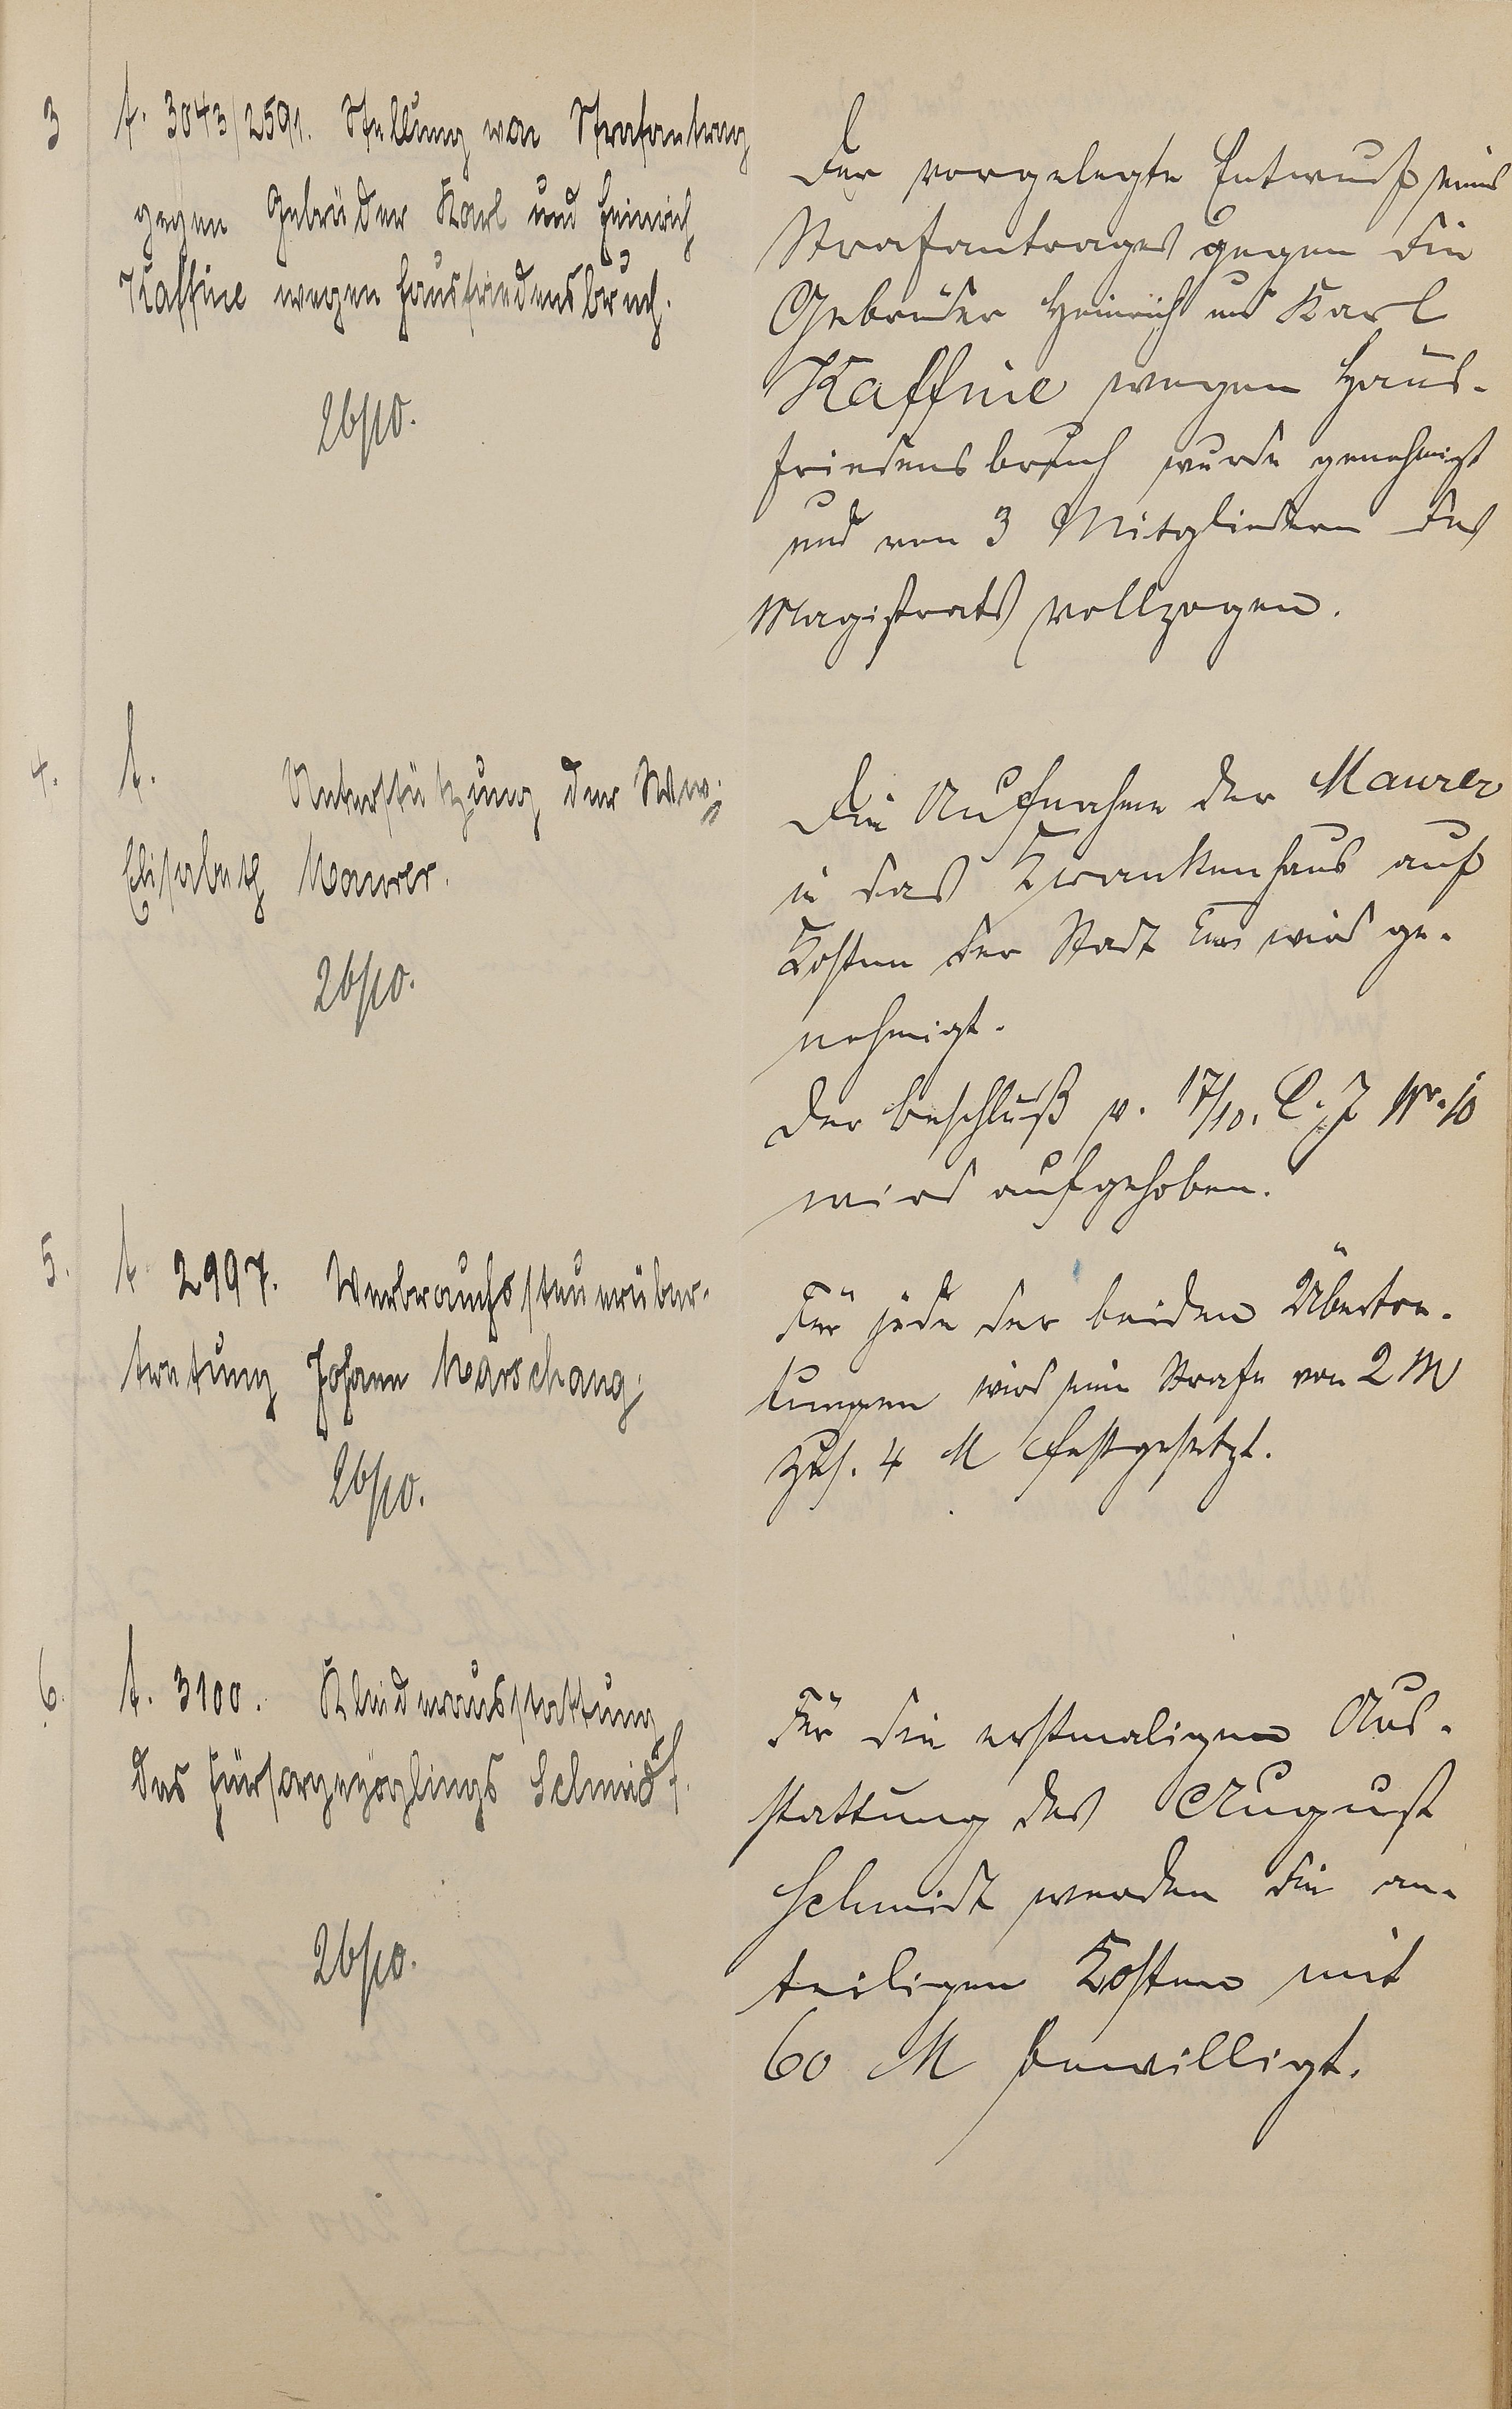 3
t. 3043/2591. Stellung von Strafantrag
gegen Gebrüder Karl und Heinrich
Kaffine wegen Hausfriedensbruch.
26/10.
Der vorgelegte Entwurf eines
Strafantrages gegen die
Gebrüder Heinrich und Karl
Kaffine wegen Haus-
friedensbruch wurde genehmigt
und von 3 Mitgliedern des
Magistrats vollzogen.
4.
t. Unterstützung der Ww.
Elisabeth Maurer.
26/10.
Die Aufnahme der Maurer
in das Krankenhaus auf
Kosten der Stadt Ems wird ge-
nehmigt.
Der Beschluß v. 17/10. l. J Nr. 10
wird aufgehoben.
5.
t. 2997. Verbrauchssteuerüber-
tretung Johann Marschang.
26/10.
Für jede der beiden Übertre-
tungen wird eine Strafe von 2 M
zus. 4 M festgesetzt.
6.
t. 3100. Kleiderausstattung
des Fürsorgezöglings Schmidt.
26/10.
Für die erstmaligen Aus-
stattung des August
Schmidt werden die an-
teiligen Kosten mit
60 M bewilligt.